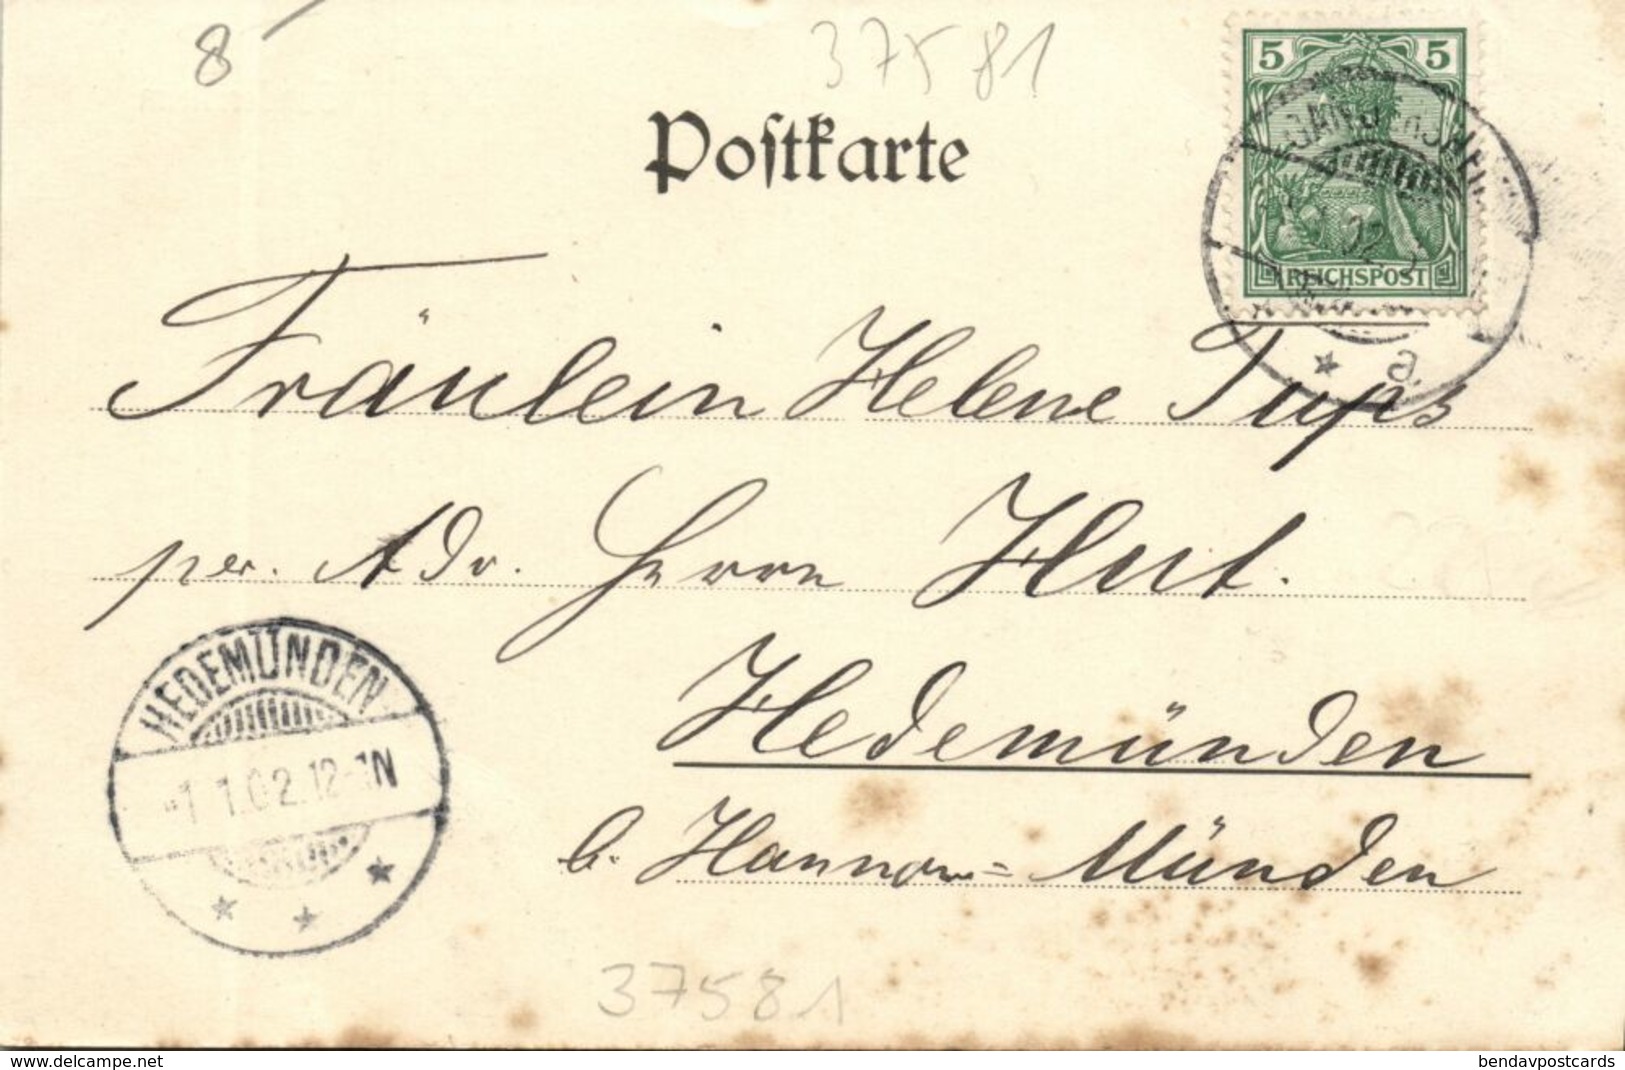 8
37581
Postkarte
5 5
REICHSPOST
02
a.
Fräulein Helene Tups
per. Adr. Herrn Hut.
Hedemünden
b. Hannov = Münden
HEDEMÜNDEN
1 1.02.12-1N
37581
www.delcampe.net
bendavpostcards